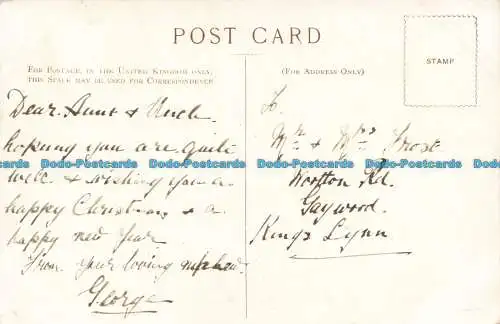 POST CARD
FOR POSTAGE IN THE UNITED KINGDOM ONLY,
THIS SPACE MAY BE USED FOR CORRESPONDENCE
(FOR ADDRESS ONLY)
STAMP
Dear Aunt & Uncle
hoping you are quite
well & wishing you a
happy Christmas & a
happy new Year
From your loving nephew
George
To
Mr & Mrs Frost
Rd.
Gaywood.
King's Lynn
Dodo-Postcards Dodo-Postcards Dodo-Postcards Dodo-Postcards